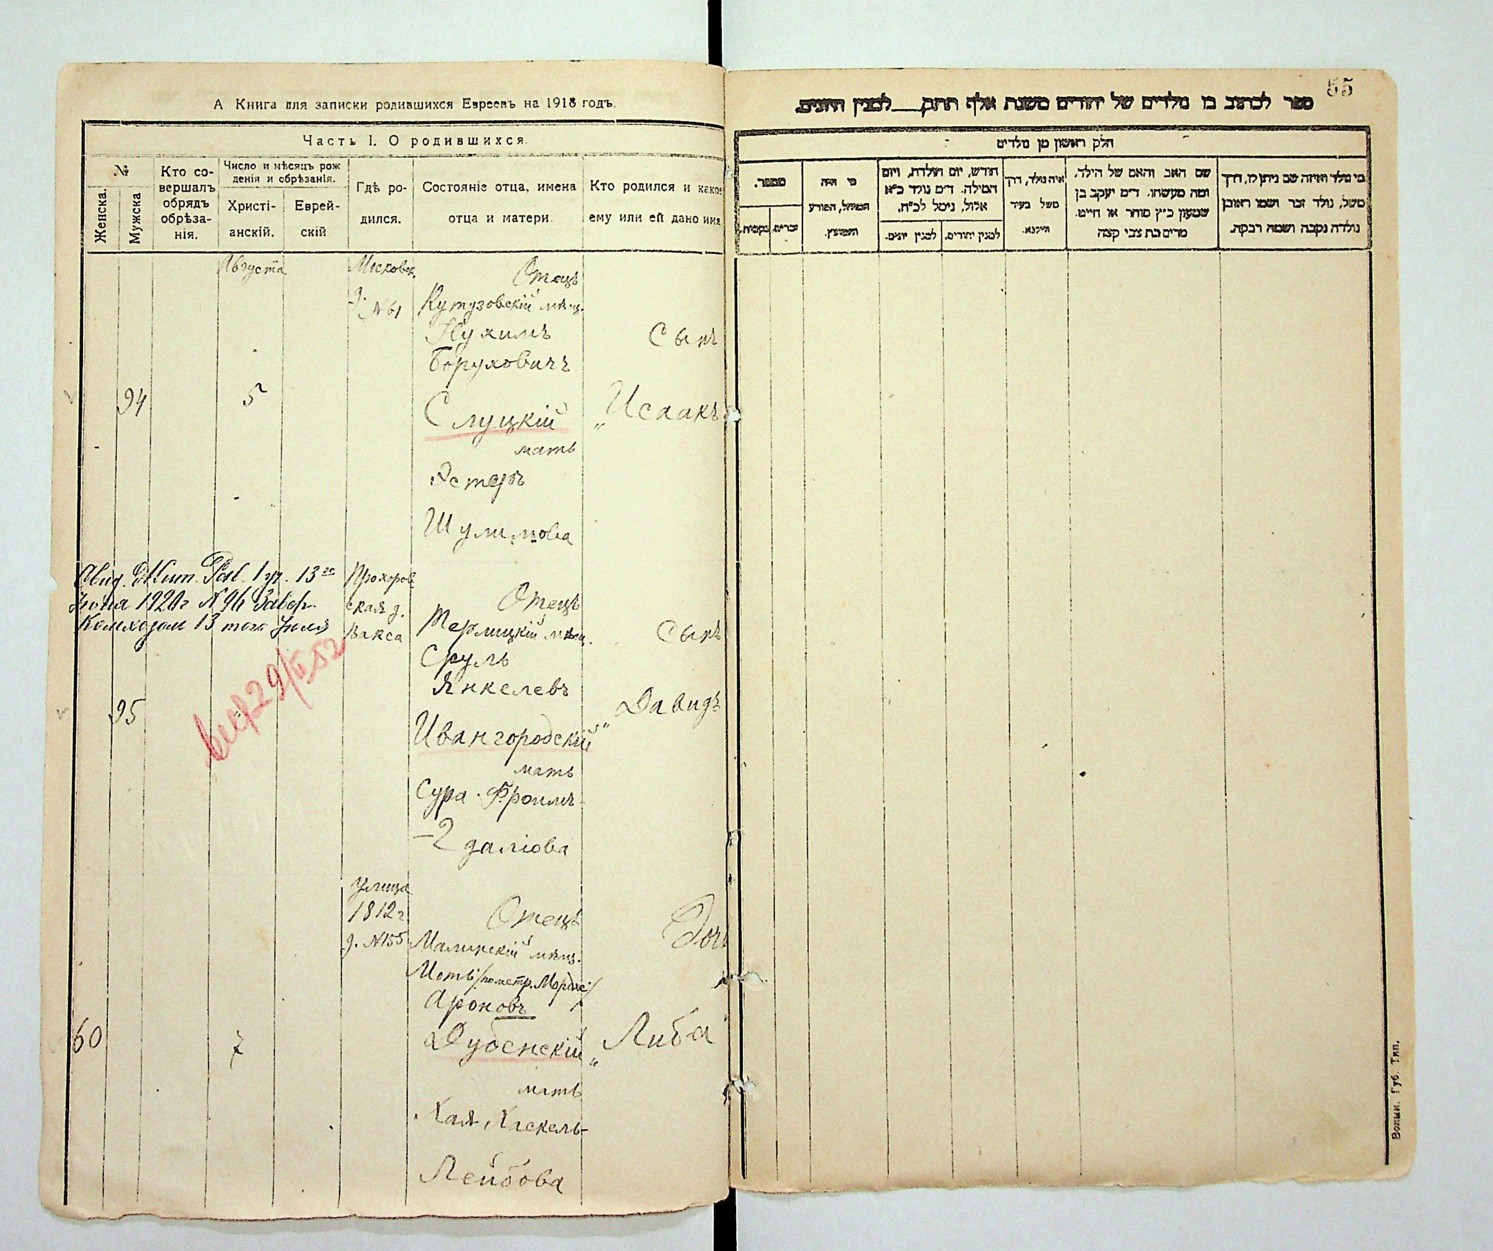 А Книга для записки родившихся Евреевъ на 1918 годъ.
Часть I. О родившихся.
№
Женска.
Мужска
Кто со-
вершалъ
обрядъ
обрѣза-
нія.
Число и мѣсяцъ рож
денія и обрѣзанія.
Христі-
анскій.
Еврей-
скій
Гдѣ ро-
дился.
Состояніе отца, имена
отца и матери.
Кто родился и како
ему или ей дано имя
Августа
94
5
Московск
д. №61
Отецъ
Кутузовскій мѣщ.
Нухимъ
Боруховичъ
Слуцкій
мать
Эстеръ
Шулимова
Сынъ
„Исаакъ
13го
1920г № 96 Завер.
13 того Іюля
95
Прохоров
ская д.
Вакса
Отецъ
Терлицкій мѣщ.
Сруль
Янкелевъ
Ивангородскій
мать
Сура-Фроимъ-
Гдаліова
Сынъ
„Давидъ
60
7
Улица
1812г
д. №155
Отецъ
Малинскій мѣщ.
Ароновъ
Дубенскій
мать
Хая Хаскель-
Лейбова
Дочь
„Либа
55
ספר לכתוב בו נולדים של יהודים משנת אלף תתק___למנין היונים.
חלק ראשון מן נולדים
מספר.
נקבות.
זכרים.
מי היה
המוהל, הפורע
והמוצץ.
חודש, יום הולדת, ויום
המילה. ד״מ נולד כ״א
אלול, נימול לכ״ח.
למנין יונים.
למנין יהודים.
איה נולד, דרך
משל בעיר
ווילנא.
שם האב והאם של הילד,
ומה מעשהו. ד״מ יעקב בן
שמעון כ״ץ סוחר או חייט.
מרים בת צבי קצה
מי נולד ואיזה שם ניתן לו, דרך
משל, נולד זכר ושמו ראובן
נולדה נקבה ושמה רבקה.
Волын. Губ. Тип.